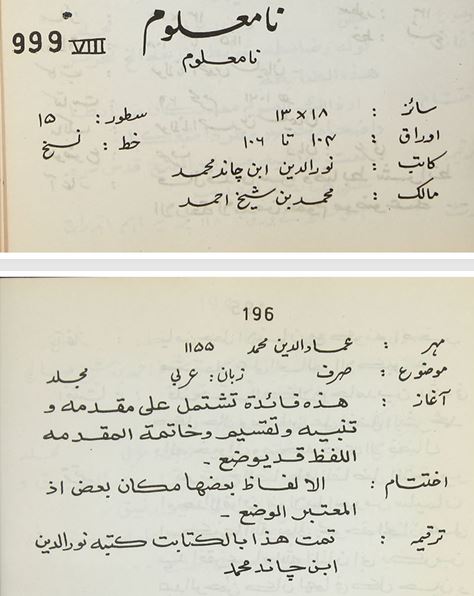 999 VIII
نامعلوم
نامعلوم
سائز : ١٨ x ١٣ سطور: ١٥
اوراق : ١٠٤ تا ١٠٦ خط: نسخ
کاتب : نورالدین ابن چاند محمد
مالک : محمد بن شیخ احمد
196
مہر : عماد الدین محمد ١١٥٥
موضوع : صرف زبان: عربی مجلد
آغاز : هذه فائدة تشتمل على مقدمه و
تنبیه وتقسیم وخاتمة المقدمه
اللفظ قد یوضع ۔
اختتام : الالفاظ بعضها مکان بعض اذ
المعتبر الوضع ۔
ترقیمہ : تمت هذا بالکتابت کتبه نورالدین
ابن چاند محمد